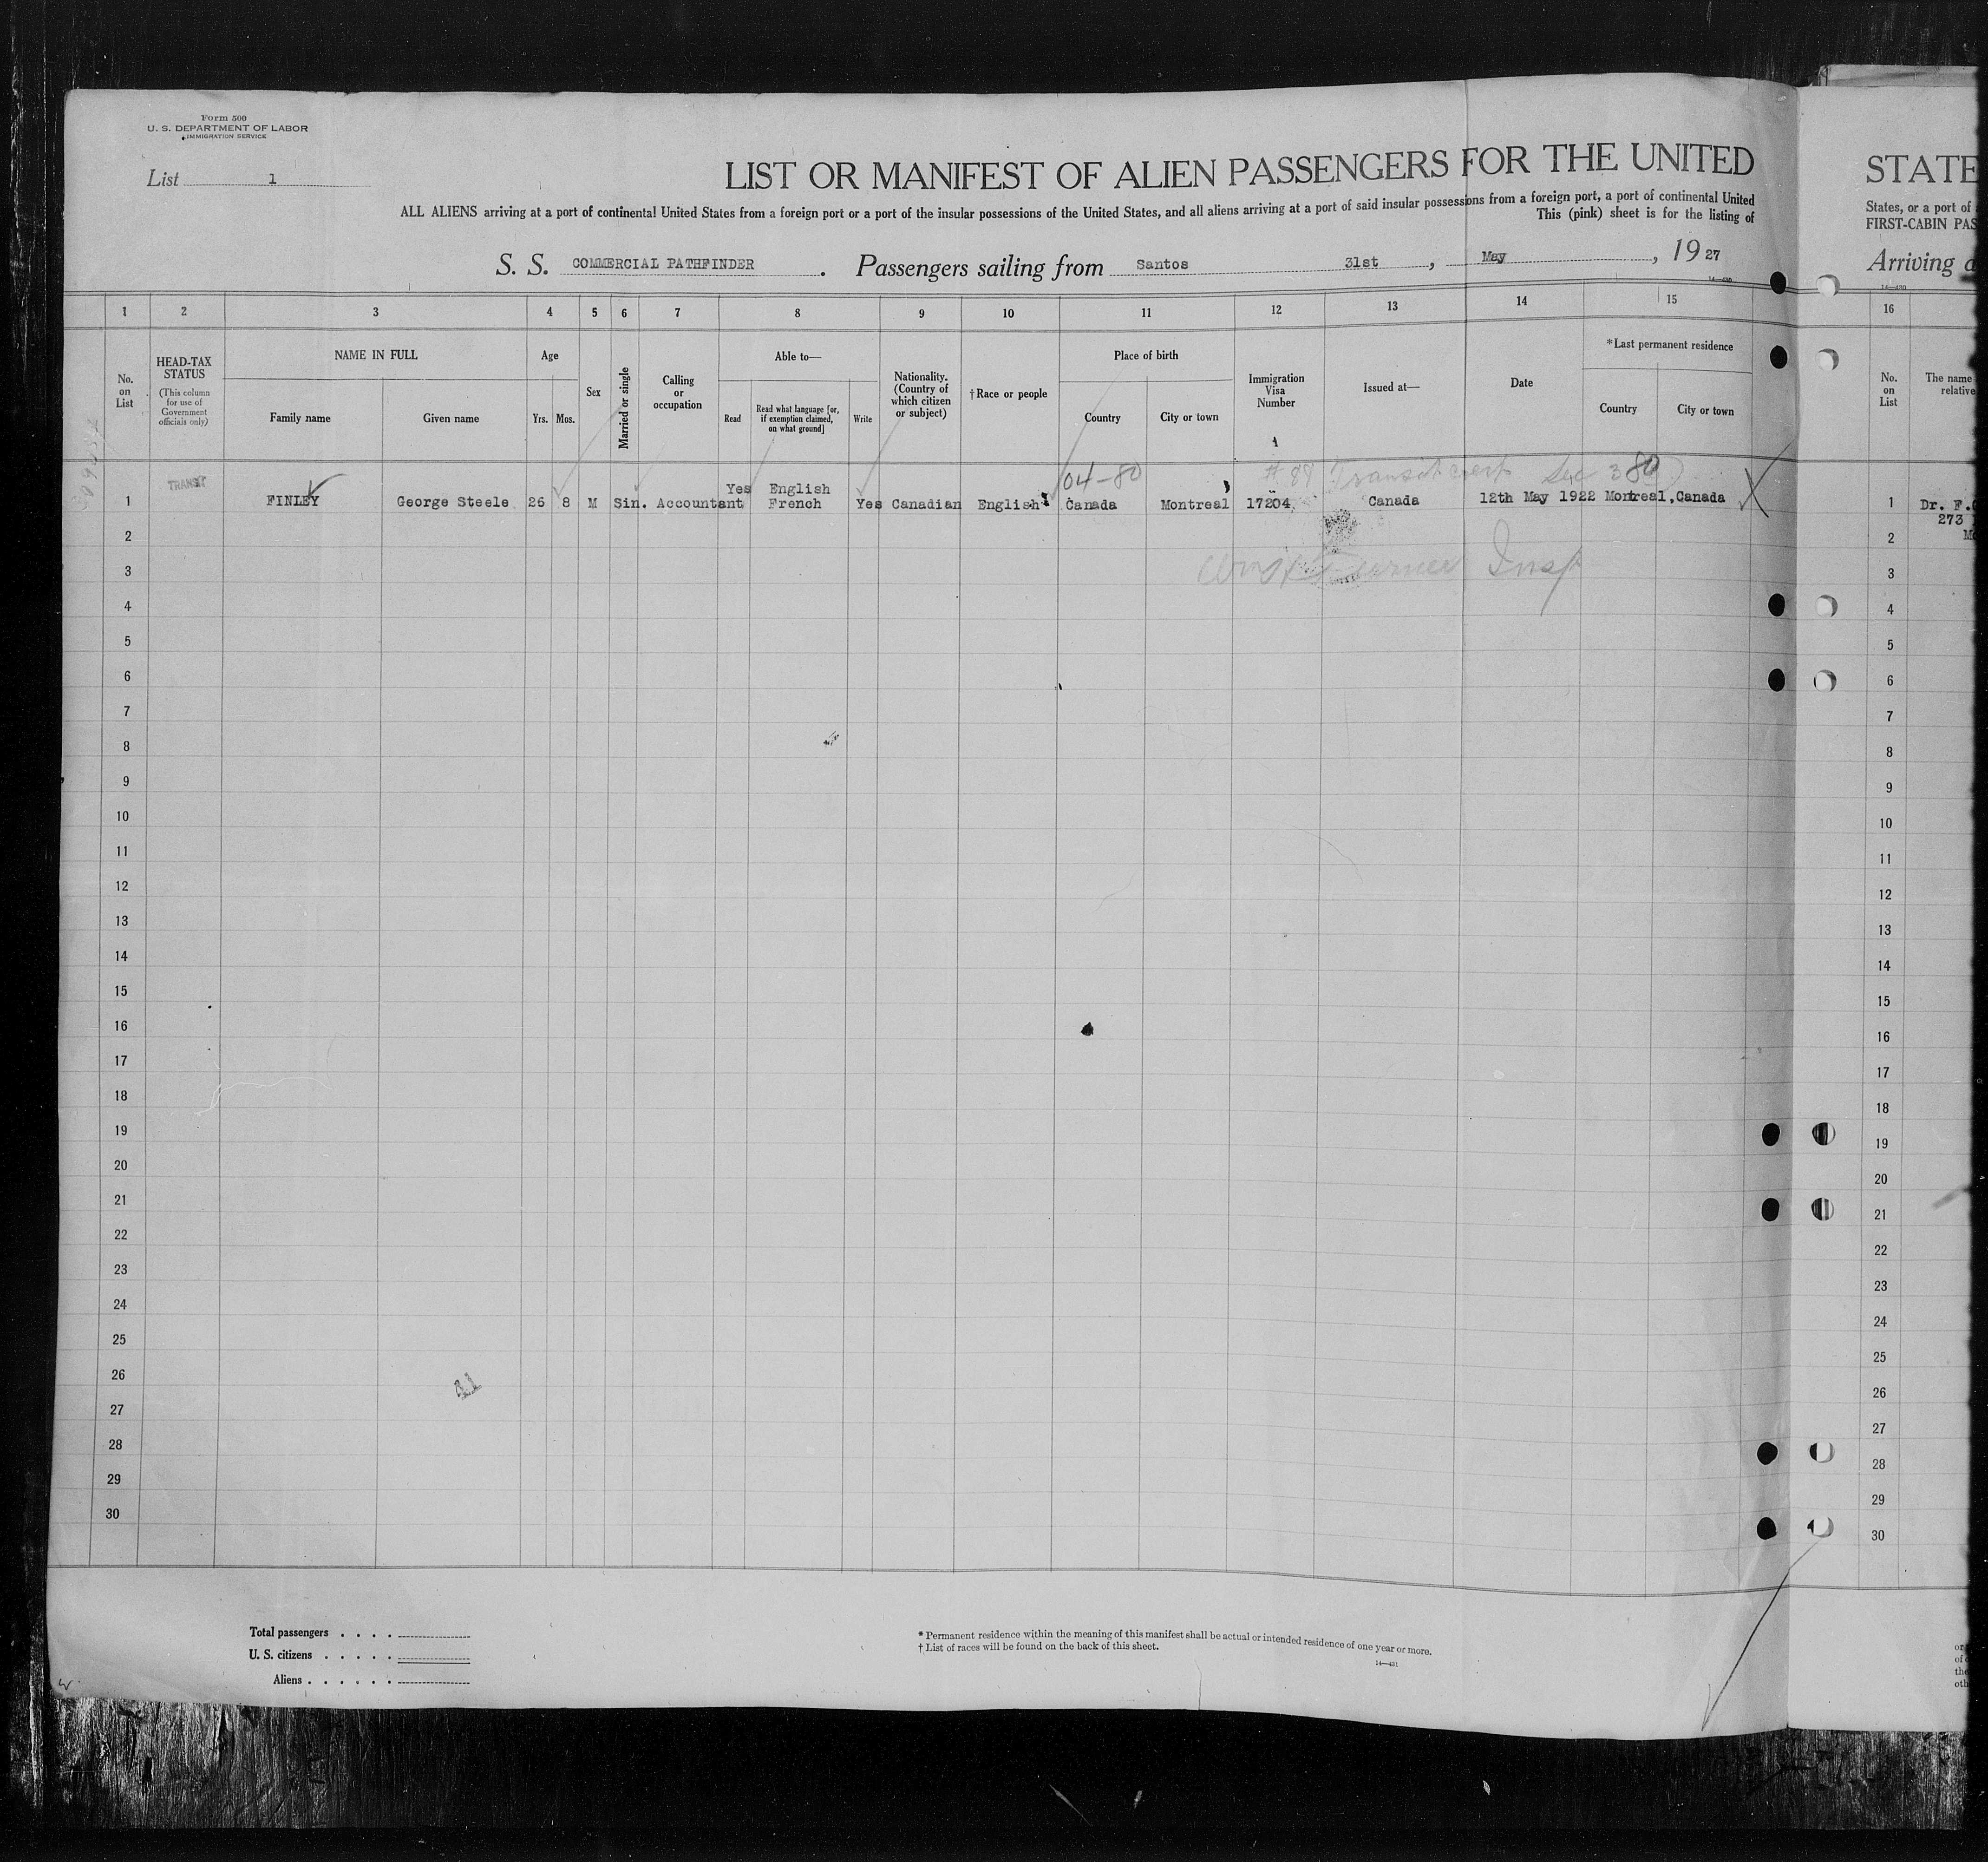 Form 500
U. S. DEPARTMENT OF LABOR
IMMIGRATION SERVICE
List 1
LIST OR MANIFEST OF ALIEN PASSENGERS FOR THE UNITED
ALL ALIENS arriving at a port of continental United States from a foreign port or a port of the insular possessions of the United States, and all aliens arriving at a port of said insular possessions from a foreign port, a port of continental United
This (pink) sheet is for the listing of
S. S. COMMERCIAL PATHFINDER . Passengers sailing from Santos 31st , May , 19 27
14—430
1 2 3 4 5 6 7 8 9 10 11 12 13 14 15
No. on List
HEAD-TAX STATUS
(This column for use of Government officials only)
NAME IN FULL
Family name Given name
Age
Yrs. Mos.
Sex
Married or single
Calling or occupation
Able to—
Read
Read what language [or, if exemption claimed, on what ground]
Write
Nationality. (Country of which citizen or subject)
†Race or people
Place of birth
Country City or town
Immigration Visa Number
Issued at—
Date
*Last permanent residence
Country City or town
04-80
TRANSIT
1 FINLEY George Steele 26 8 M Sin. Accountant Yes English French Yes Canadian English Canada Montreal 17204 Canada 12th May 1922 Montreal, Canada
2
3
Insp
4
5
6
7
8
9
10
11
12
13
14
15
16
17
18
19
20
21
22
23
24
25
26
27
28
29
30
Total passengers . . . .
U. S. citizens . . . . .
Aliens . . . . . .
* Permanent residence within the meaning of this manifest shall be actual or intended residence of one year or more.
† List of races will be found on the back of this sheet.
14—431
STATE
States, or a port of
FIRST-CABIN PAS
Arriving a
14—430
16
No. on List
The name
relative
1 Dr. F.
273
2
3
4
5
6
7
8
9
10
11
12
13
14
15
16
17
18
19
20
21
22
23
24
25
26
27
28
29
30